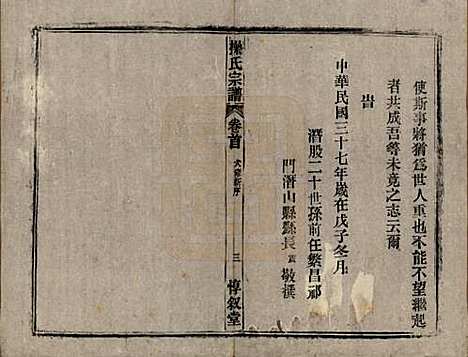 使斯事將猶爲世人重也不能不望繼起
者共成吾等未竟之志云爾
旹
中華民國三十七年歲在戊子冬月
潛股二十世孫前任繁昌祁
門潛山縣縣長 敬撰
操氏宗譜
卷首
三
惇敘堂